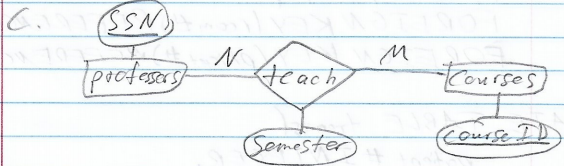 C.
SSN
professors N teach M Courses
Semester course ID